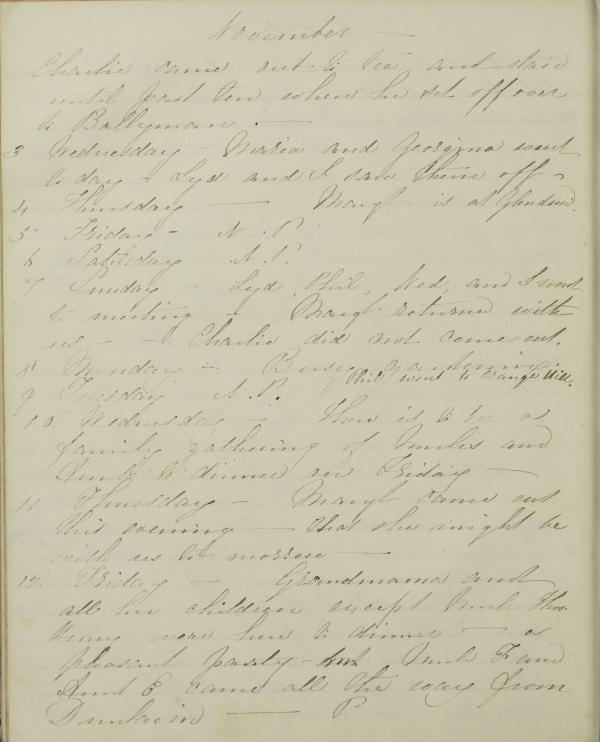 November —
Charlie came out to tea and staid
until past ten when he set off over
to Ballyman. —
3 Wednesday – Maria and Georgina went
to day – Lyd and I saw them off –
4 Thursday — Margt is at Glendruid.
5 Friday – N. P.
6 Saturday N. P.
7 Sunday – Lyd, Phil, Ned, and I went
to meeting – Margt returned with
us – – Charlie did not come out.
8 Monday – Busy gardening.
9 Tuesday N. P. Phil went to Orange Hill.
10 Wednesday – There is to be a
family gathering of Uncles and
Aunts to dinner on Friday —
11 Thursday – Margt came out
this evening — that she might be
with us to morrow —
12 Friday – Grandmama and
all her children except Uncle Thos
Henry were here to dinner — a
pleasant party – Uncle F and
Aunt E came all the way from
Dunlavin — P